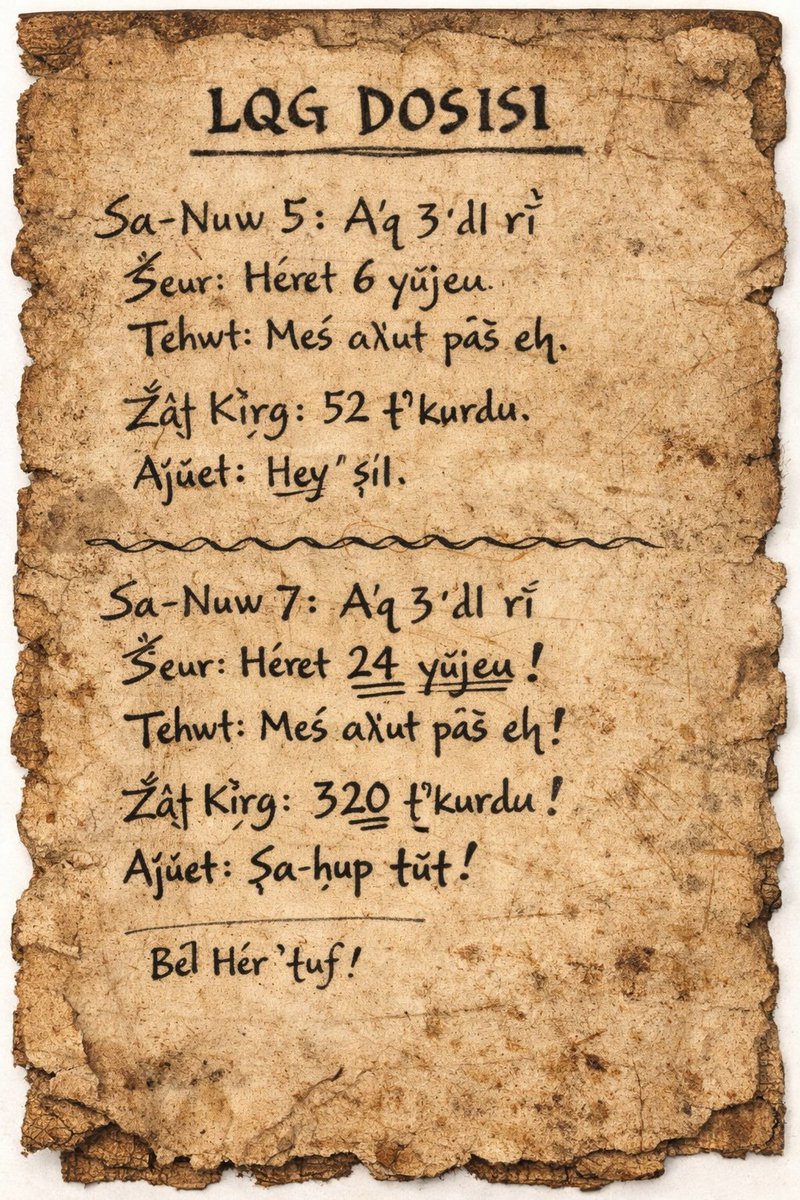 LQG DOSISI
Sa-Nuw 5: A'q 3'dl rī̀
S̋eur: Héret 6 yŭjeu.
Tehwt: Meś aλut pâš eⱨ.
Žâƫ Kı̀ṛg: 52 ƫ'kurdu.
Aj́ŭet: Hey" şíl.
Sa-Nuw 7: A'q 3'dl rī́
S̋eur: Héret 24 yŭjeu!
Tehwt: Meś aλut pâš eⱨ!
Žâƫ Kı̀ṛg: 320 ƫ'kurdu!
Aj́ŭet: Şa-ḥup ŧŭŧ!
Bel̂ Hér 'ŧuf!